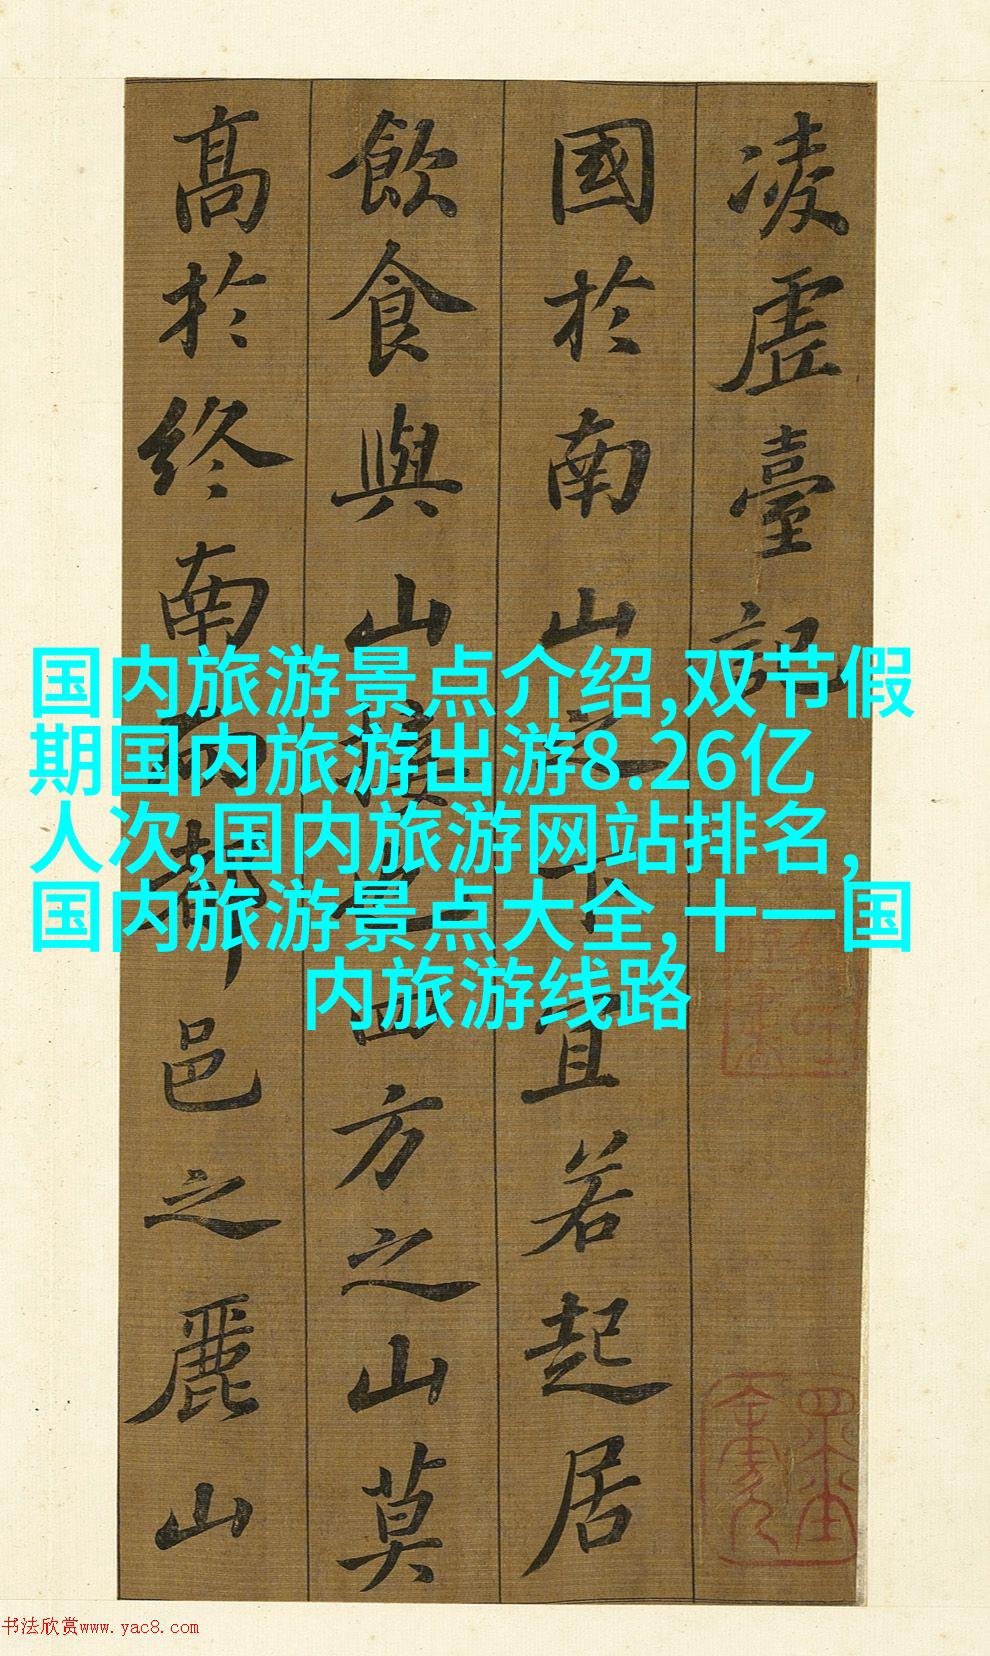 凌虛臺記
國於南山之下宜若起居
飲食與山接也四方之山莫
髙於終南而都邑之麗山
国内旅游景点介绍,双节假
期国内旅游出游8.26亿
人次,国内旅游网站排名,
国内旅游景点大全,十一国
内旅游线路
书法欣赏www.yac8.com